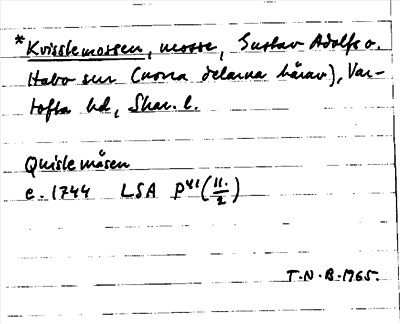 *Kvisslemossen, mosse, Gustav Adolfs o.
Habo snr (norra delarna härav), Var-
tofta hd, Skar. l.
Quislemåsen
c. 1744 LSA P41 (11./2)
T.N.B. 1965.